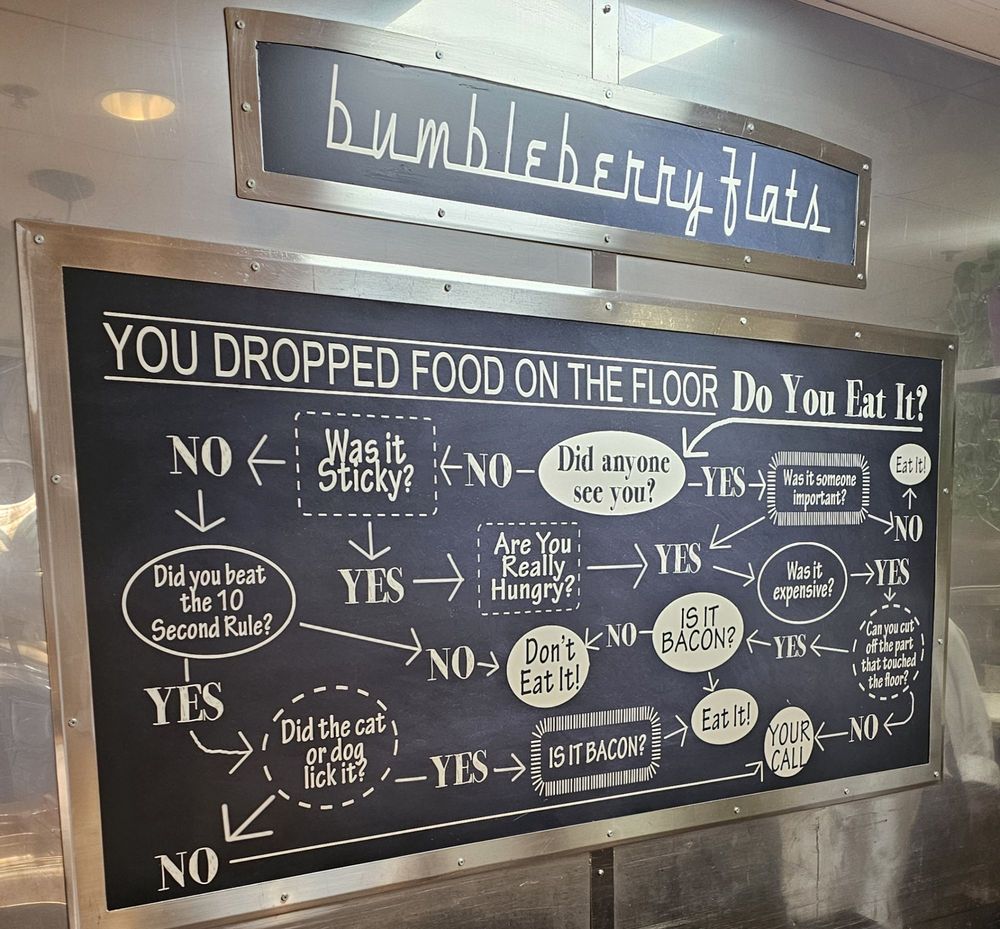 bumbleberry flats
YOU DROPPED FOOD ON THE FLOOR Do You Eat It?
NO
Was it
Sticky?
NO
Did anyone
see you?
YES
Was it someone
important?
Eat It!
NO
YES
Are You
Really
Hungry?
YES
Was it
expensive?
YES
Did you beat
the 10
Second Rule?
NO
Don't
Eat It!
NO
IS IT
BACON?
YES
Can you cut
off the part
that touched
the floor?
YES
Did the cat
or dog
lick it?
YES
IS IT BACON?
Eat It!
YOUR
CALL
NO
NO